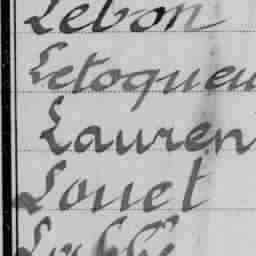 Lebon
Letoqueu
Lauren
Louet